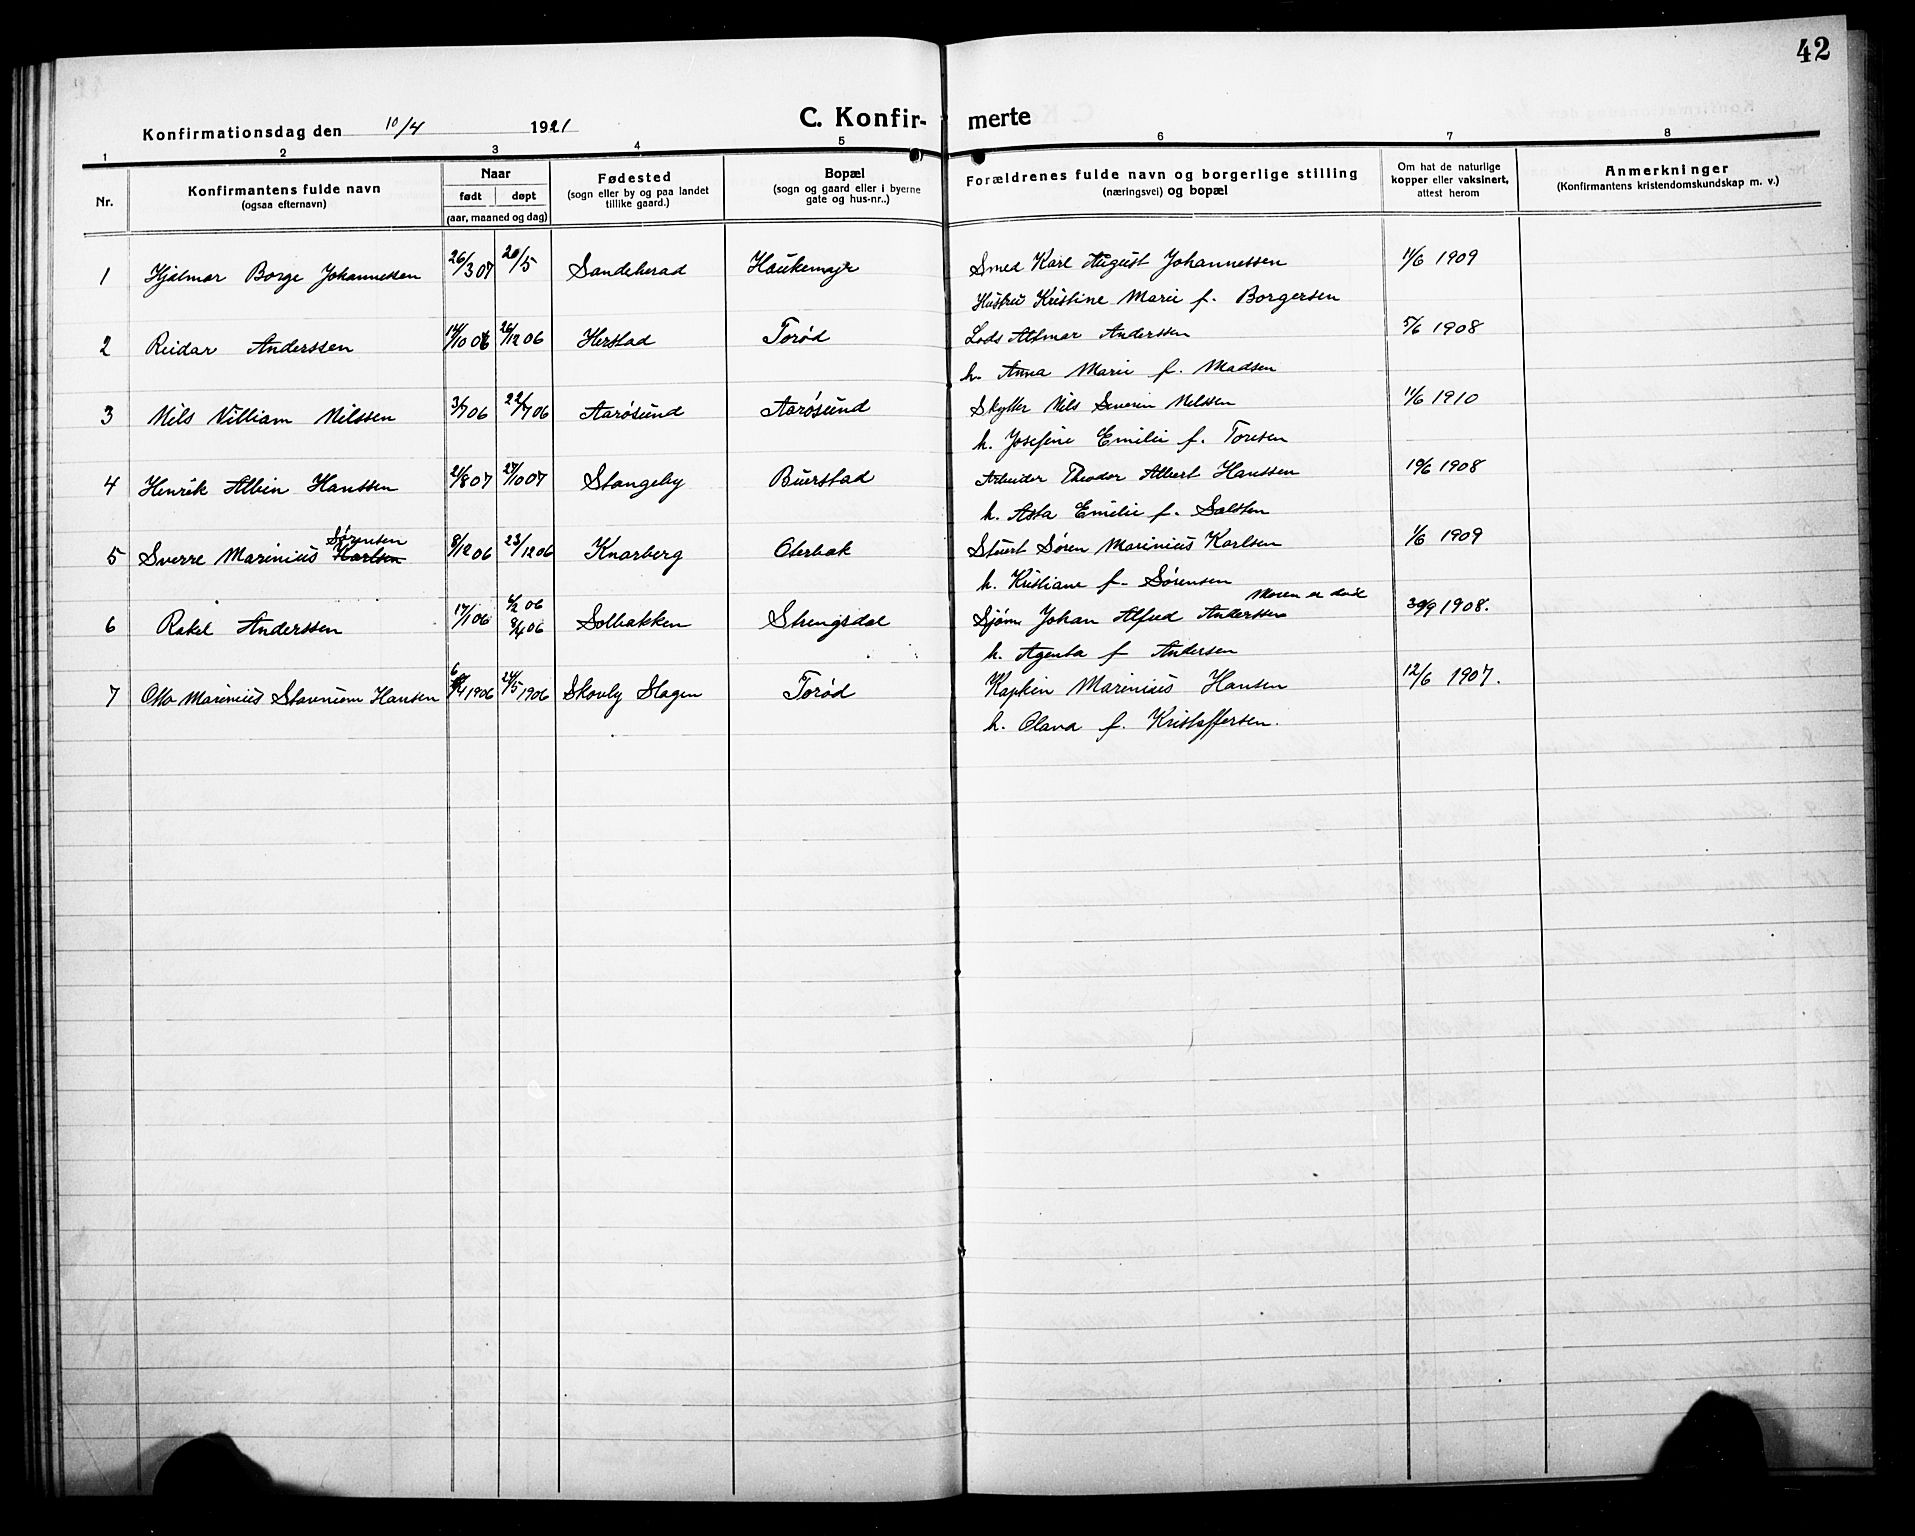 42
Konfirmationsdag den 10/4 1921 C. Konfir- merte
1 2 3 4 5 6 7 8
Nr. Konfirmantens fulde navn (ogsaa efternavn) Naar født døpt (aar, maaned og dag) Fødested (sogn eller by og paa landet tillike gaard.) Bopæl (sogn og gaard eller i byerne gate og hus-nr..) Forældrenes fulde navn og borgerlige stilling (næringsvei) og bopæl Om hat de naturlige kopper eller vaksinert, attest herom Anmerkninger (Konfirmantens kristendomskundskap m. v.)
1 Hjalmar Borge Johannessen 26/3 07 20/5 Sandeherad Haukemyr Smed Karl August Johannessen 11/6 1909
Hustru Kristine Marie f. Borgersen
2 Reidar Anderssen 14/10 06 26/12 06 Herstad Torød Lods Anderssen 5/6 1908
h. Anna Marie f. Madsen
3 Nils Villiam Nilssen 3/7 06 22/7 06 Aarøsund Aarøsund Skytter Nils Severin Nilssen 11/6 1910
h. Josefine Emilie f. Toresen
4 Henrik Albin Hanssen 2/8 07 27/10 07 Stangeby Buerstad Arbeider Theodor Albert Hanssen 19/6 1908
h. Asta Emilie f.
5 Sverre Marinius Karlsen Sørensen 8/12 06 23/12 06 Knarberg Oterbæk Stuert Søren Marinius Karlsen 1/6 1909
h. Kristiane f. Sørensen
6 Rakel Anderssen 17/1 06 6/2 06 8/4 06 Solbakken Strengsdal Sjøm. Johan Alfred Anderssen Moren er død 30/9 1908.
h. Agenta f Andersen
7 Otto Marinius Stavnum Hansen 6/4 1906 24/5 1906 Skovby Slagen Torød Kaptein Marinius Hansen 12/6 1907.
h. Olava f. Kristoffersen.